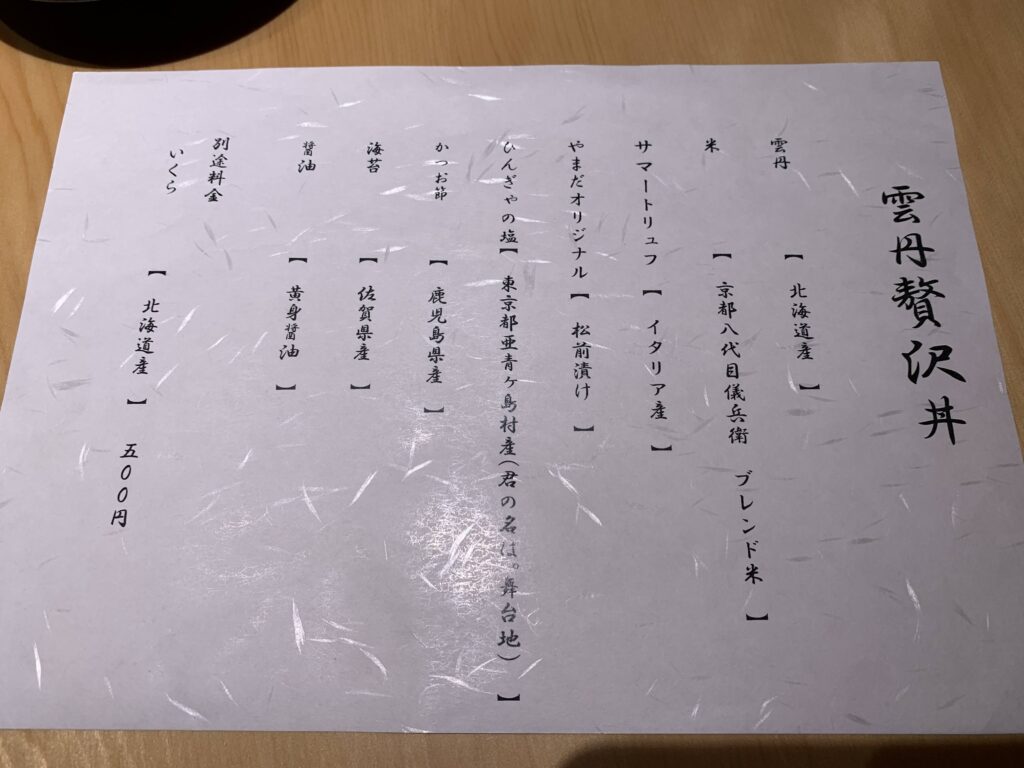 雲丹贅沢丼
雲丹 【 北海道産 】
米 【 京都八代目儀兵衛 ブレンド米 】
サマートリュフ 【 イタリア産 】
やまだオリジナル 【 松前漬け 】
ひんぎゃの塩 【 東京都亜青ヶ島村産(君の名は。舞台地) 】
かつお節 【 鹿児島県産 】
海苔 【 佐賀県産 】
醤油 【 黄身醤油 】
別途料金
いくら 【 北海道産 】 五00円